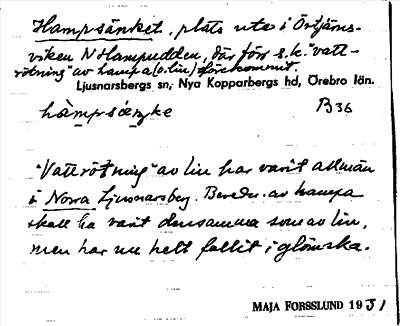 Hampsänket, plats ute i Örtjärns-
viken N Hampudden, där förr s.k. "vatt-
rötning" av hampa (o. lin) förekommit.
Ljusnarsbergs sn, Nya Kopparbergs hd, Örebro län.
hàmpsäŋke B36
"Vattrötning" av lin har varit allmän
i Norra Ljusnarsberg. Beredn. av hampa
skall ha varit densamma som av lin,
men har nu helt fallit i glömska.
MAJA FORSSLUND 1931